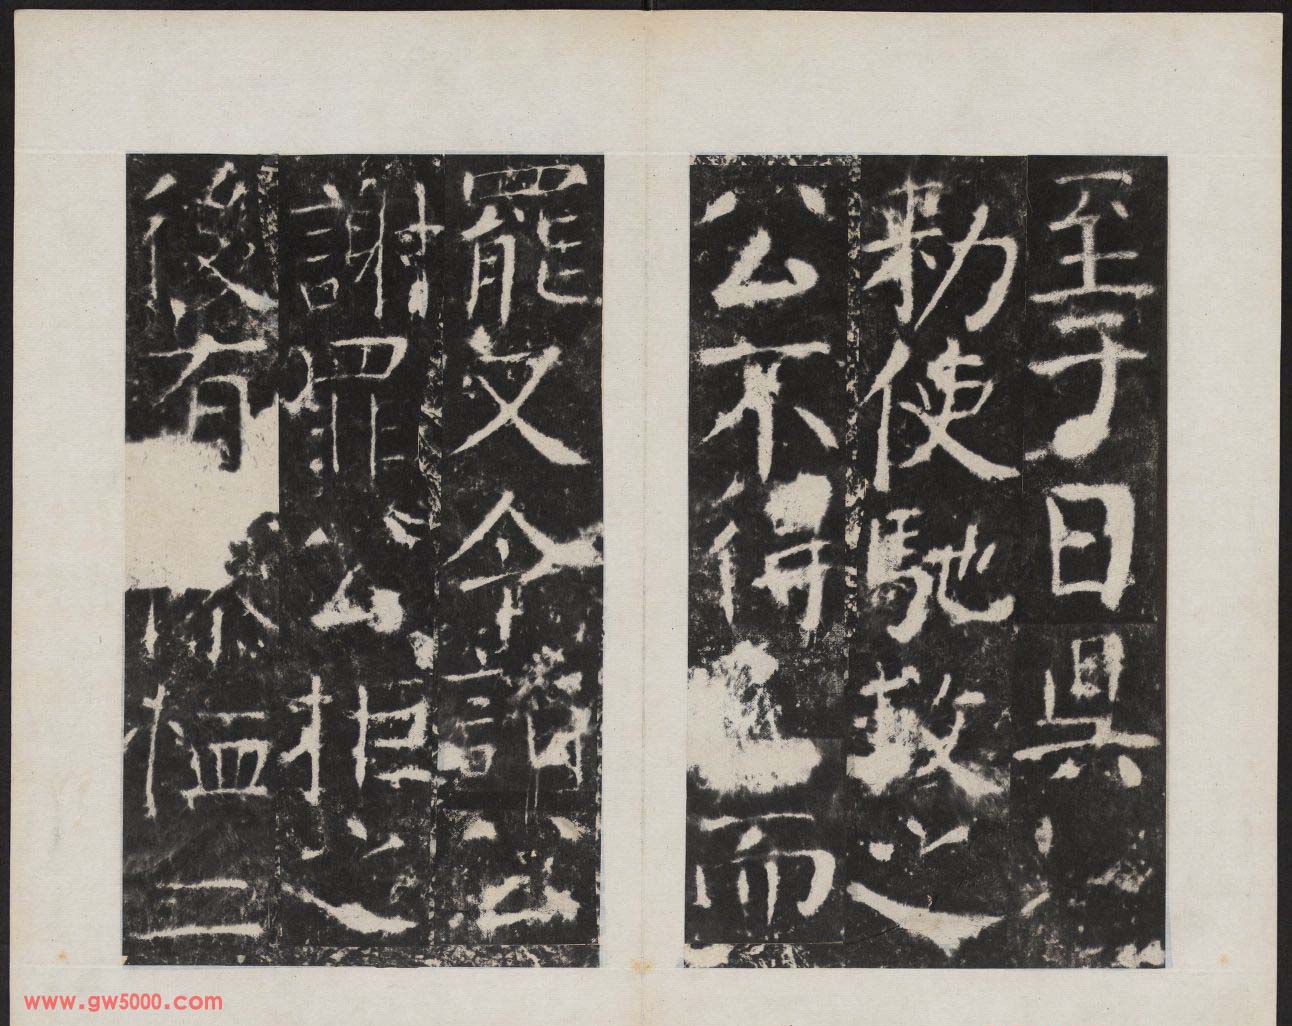 至于日具
勑使馳救之
公不得而
罷又令詣公
謝罪公拒之
後有慍二
www.gw5000.com